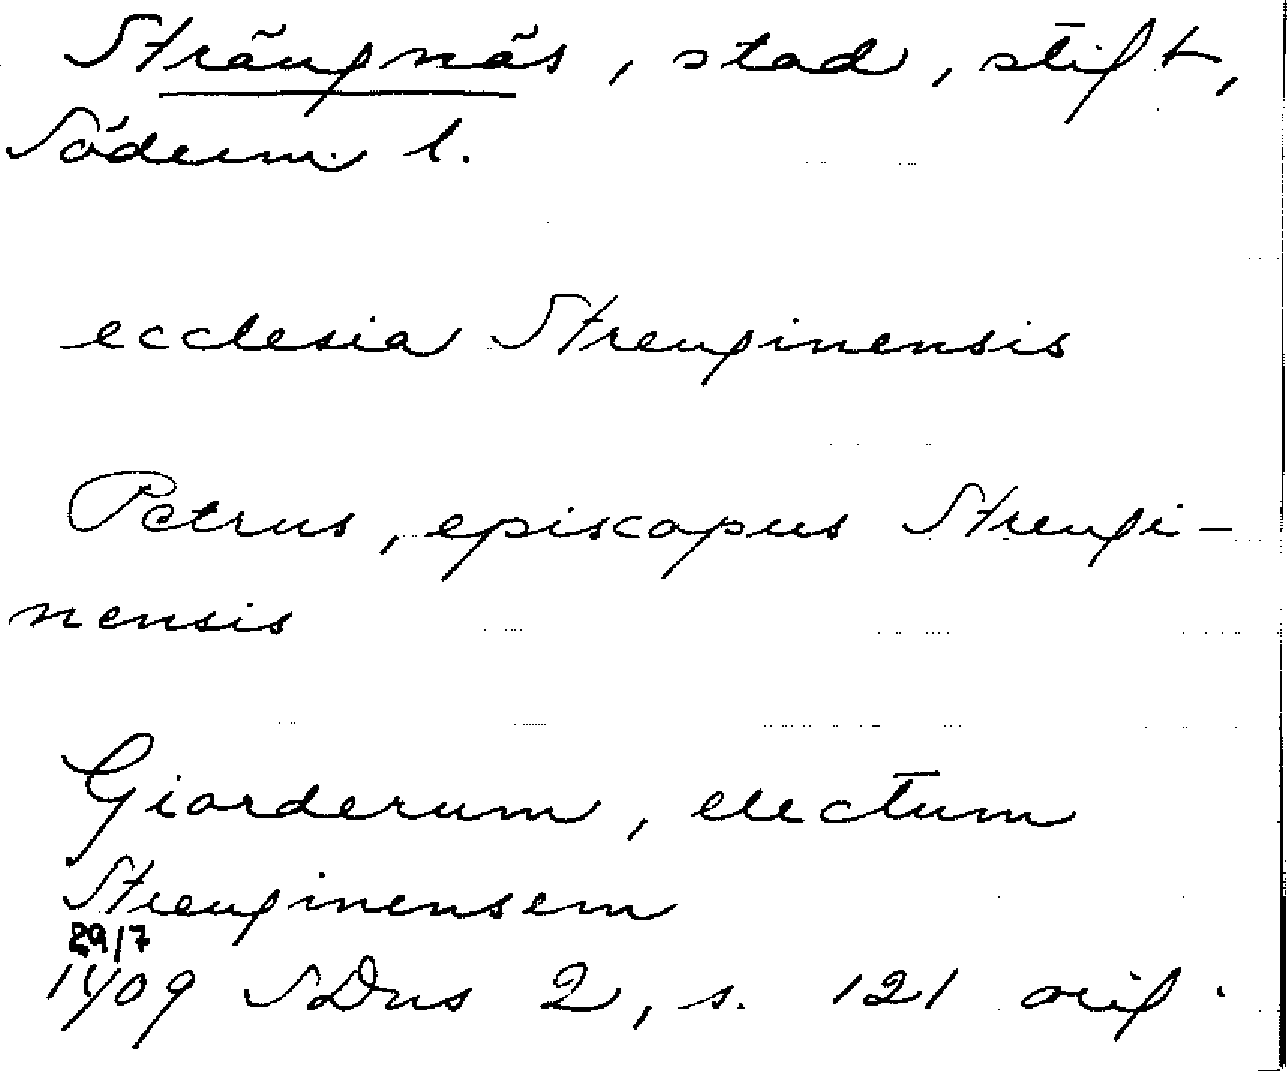 Strängnäs, stad, stift,
Söderm. l.
ecclesia Strenginensis
Petrus, episcopus Strengi-
nensis
Giorderum, electum
Strenginensem
29/7
1409 SDns 2, s. 121 orig.